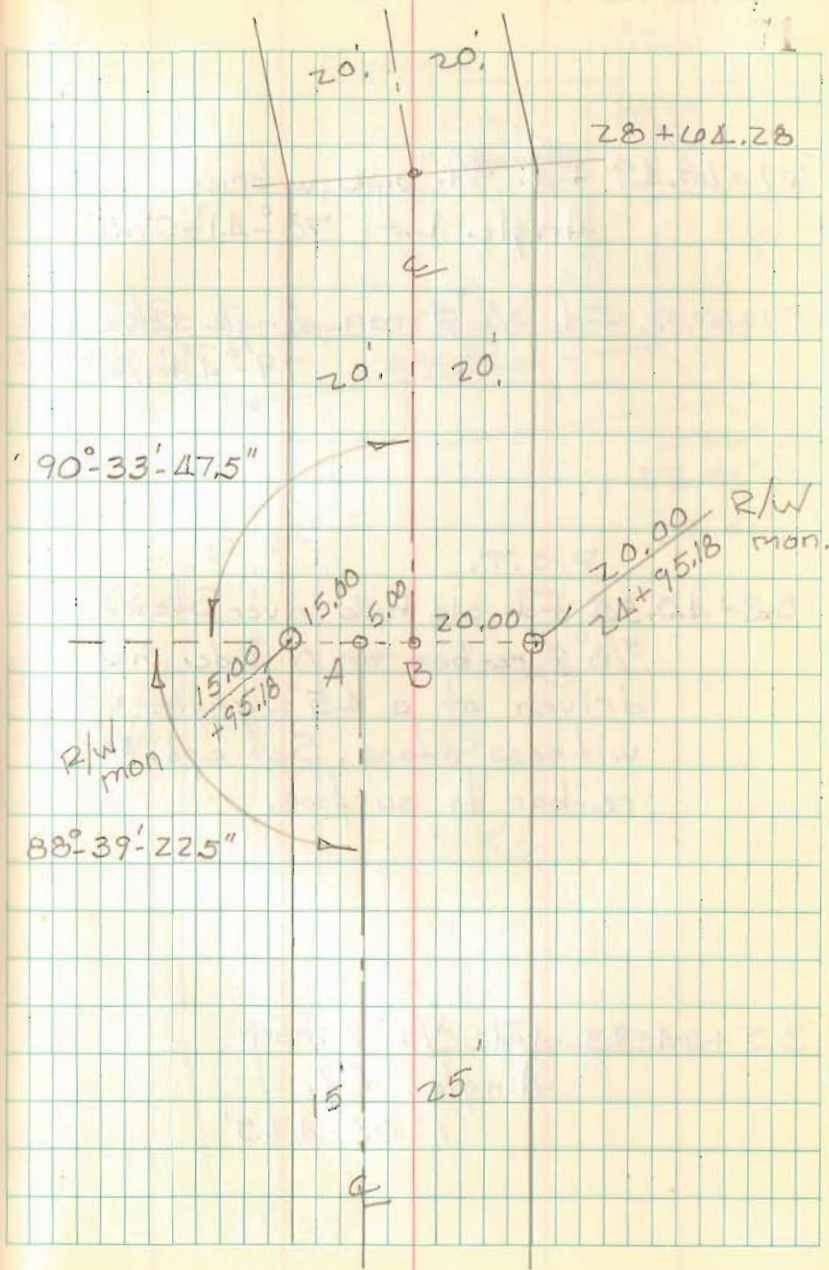 20'. 20'.
28+64.28
℄
20'. 20'.
90°-33'-47.5"
R/W
mon.
20.00
24+95.18
15.00 5.00 20.00
A B
15.00
+95.18
R/W
mon
88°-39'-22.5"
15' 25'
℄